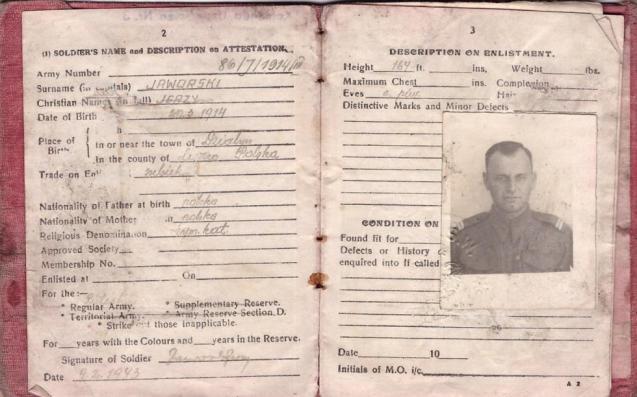 2
(1) SOLDIER'S NAME and DESCRIPTION on ATTESTATION.
Army Number 86/7/1914/III
Surname (in capitals) JAWORSKI
Christian Names (in full) JERZY
Date of Birth 1914
Place of Birth
In or near the town of
In the county of Polska
Trade on
Nationality of Father at birth polska
Nationality of Mother polska
Religious Denomination rzym. kat.
Approved Society
Membership No.
Enlisted at On
For the:—
* Regular Army. * Supplementary Reserve.
* Territorial Army. * Army Reserve Section D.
* Strike out those inapplicable.
For years with the Colours and years in the Reserve.
Signature of Soldier
Date 9.2.1943
3
DESCRIPTION ON ENLISTMENT.
Height 164 ft. ins. Weight lbs.
Maximum Chest ins. Complexion
Eyes Hair
Distinctive Marks and Minor Defects
CONDITION ON
Found fit for
Defects or History o
enquired into if called
Date 10
Initials of M.O. i/c.
A 2